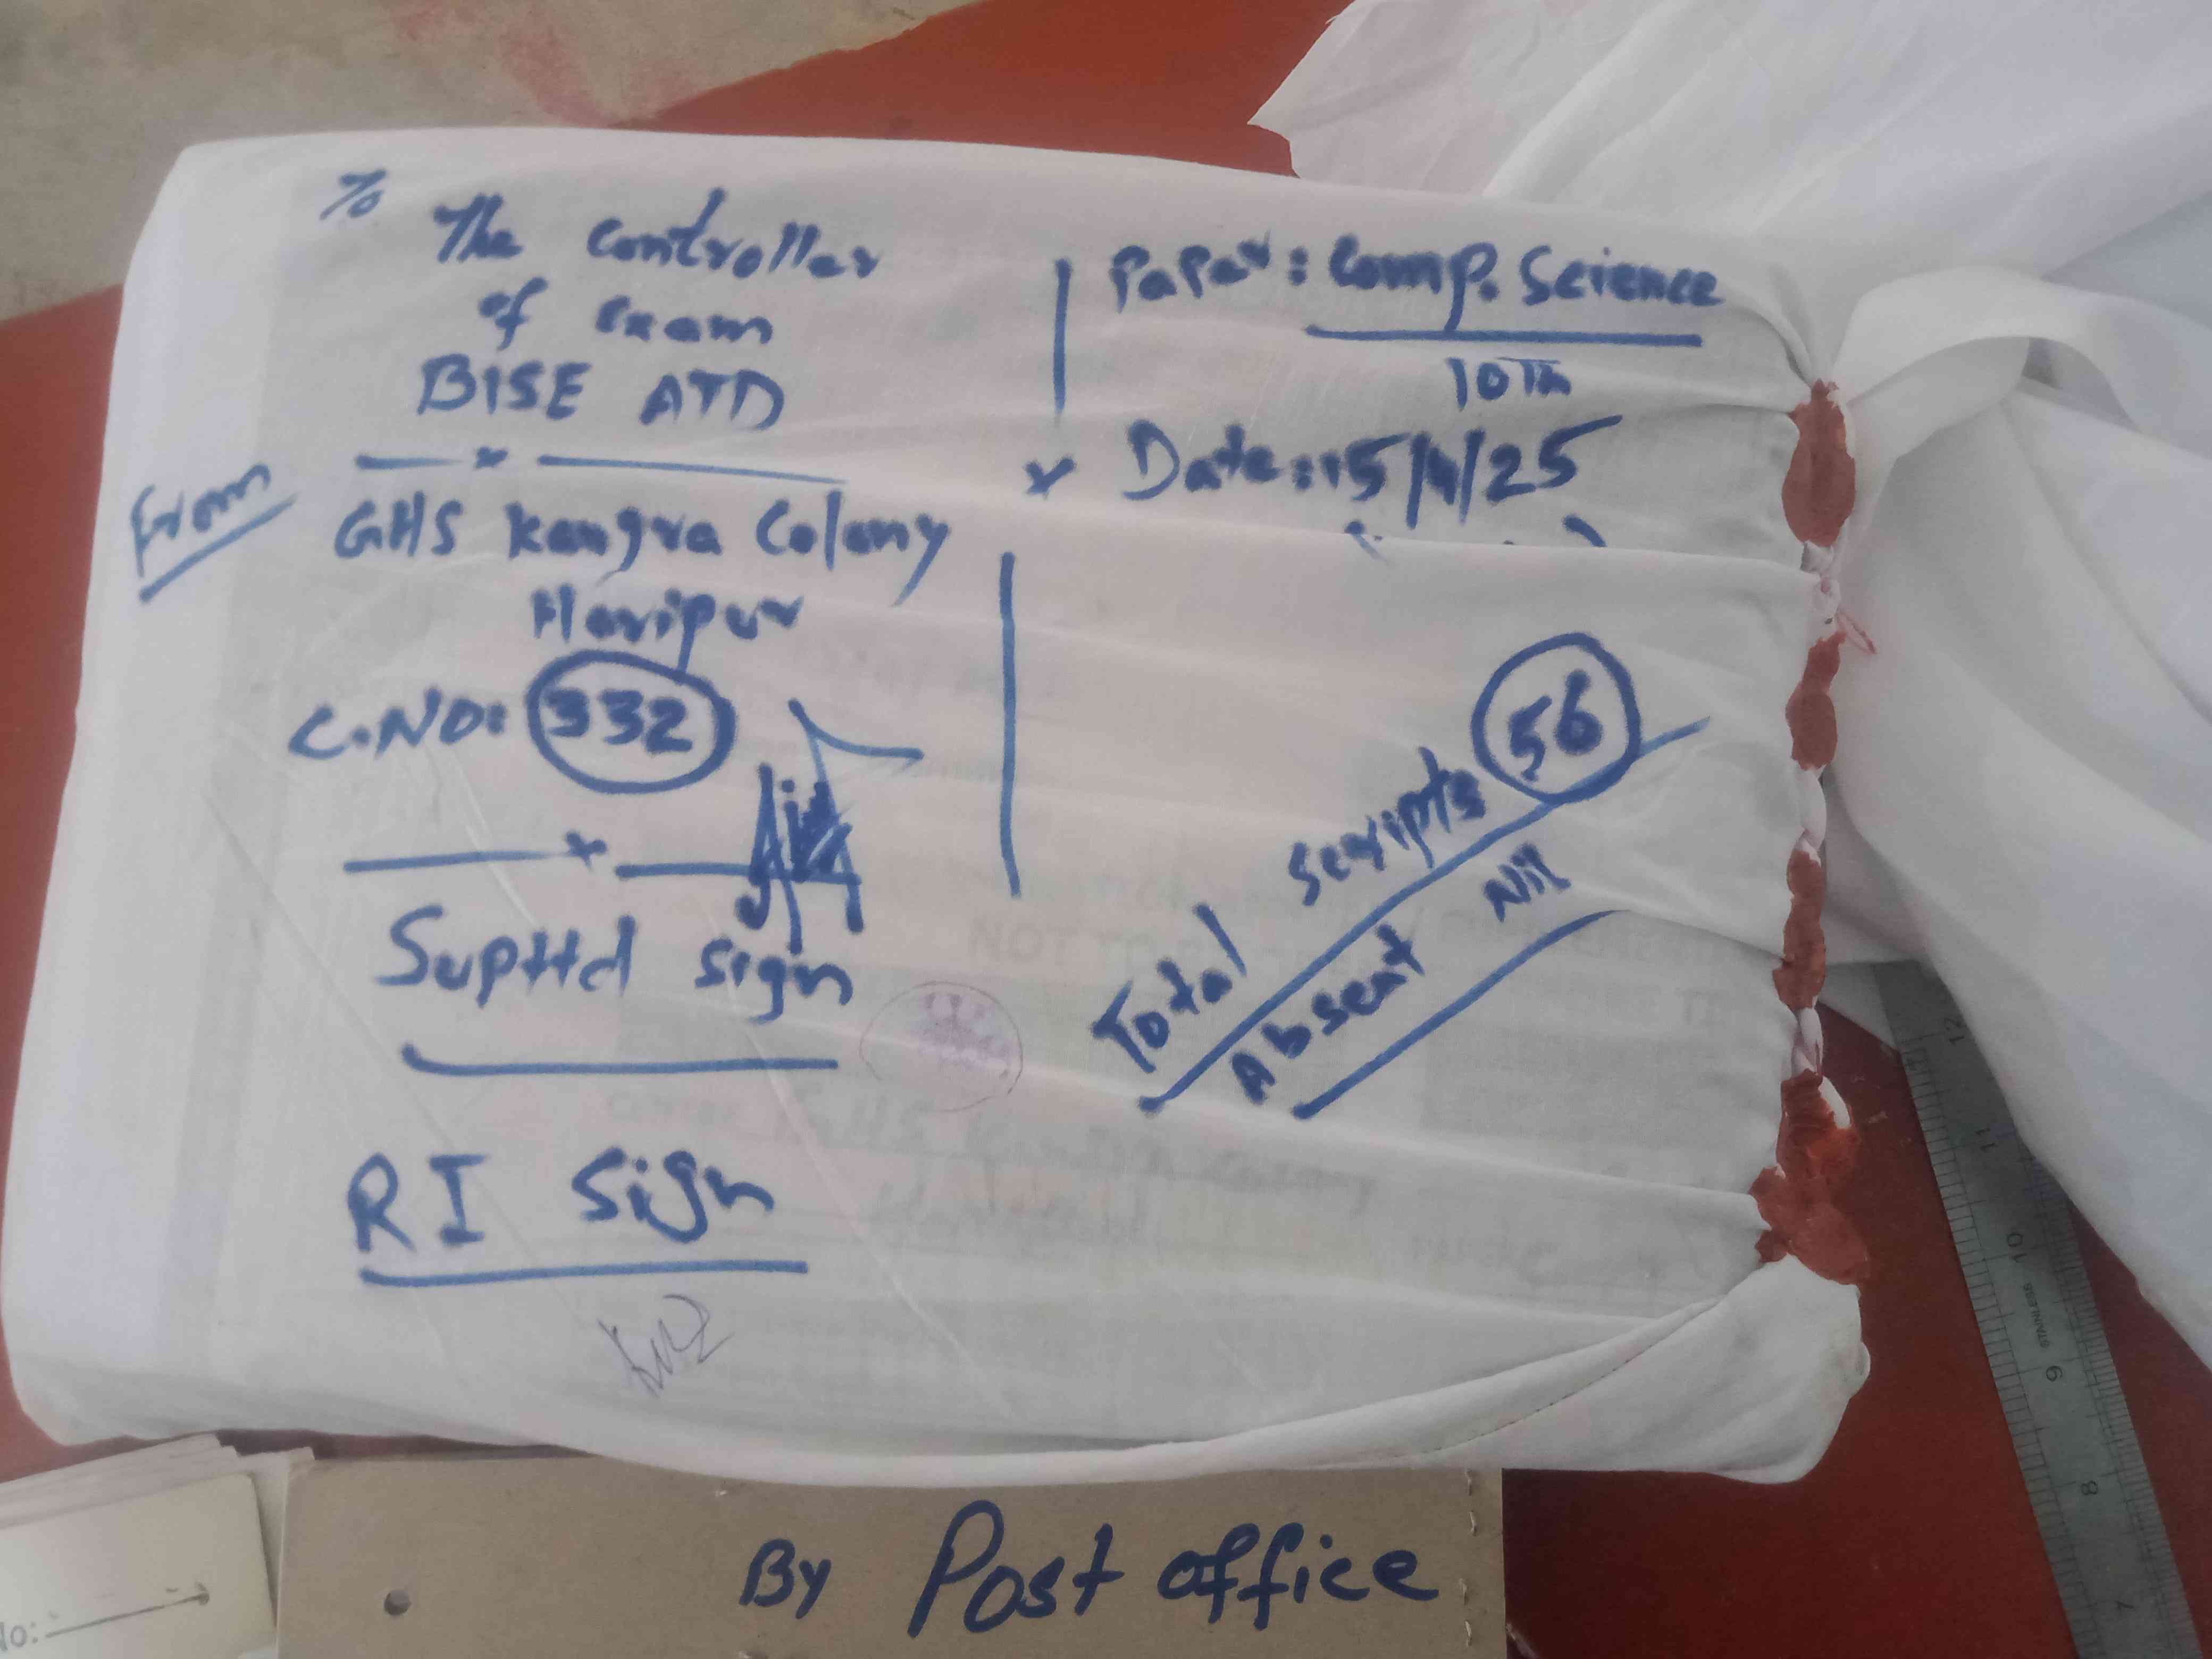 To
The Controller
of Exam
BISE ATD
From
GHS Kangra Colony
Haripur
C.NO: 332
Supttd Sign
RI Sign
Paper: Comp. Science
10th
Date: 15/4/25
Total Scripts 56
Absent Nil
By Post office
No:
STAINLESS
12
11
10
9
8
7